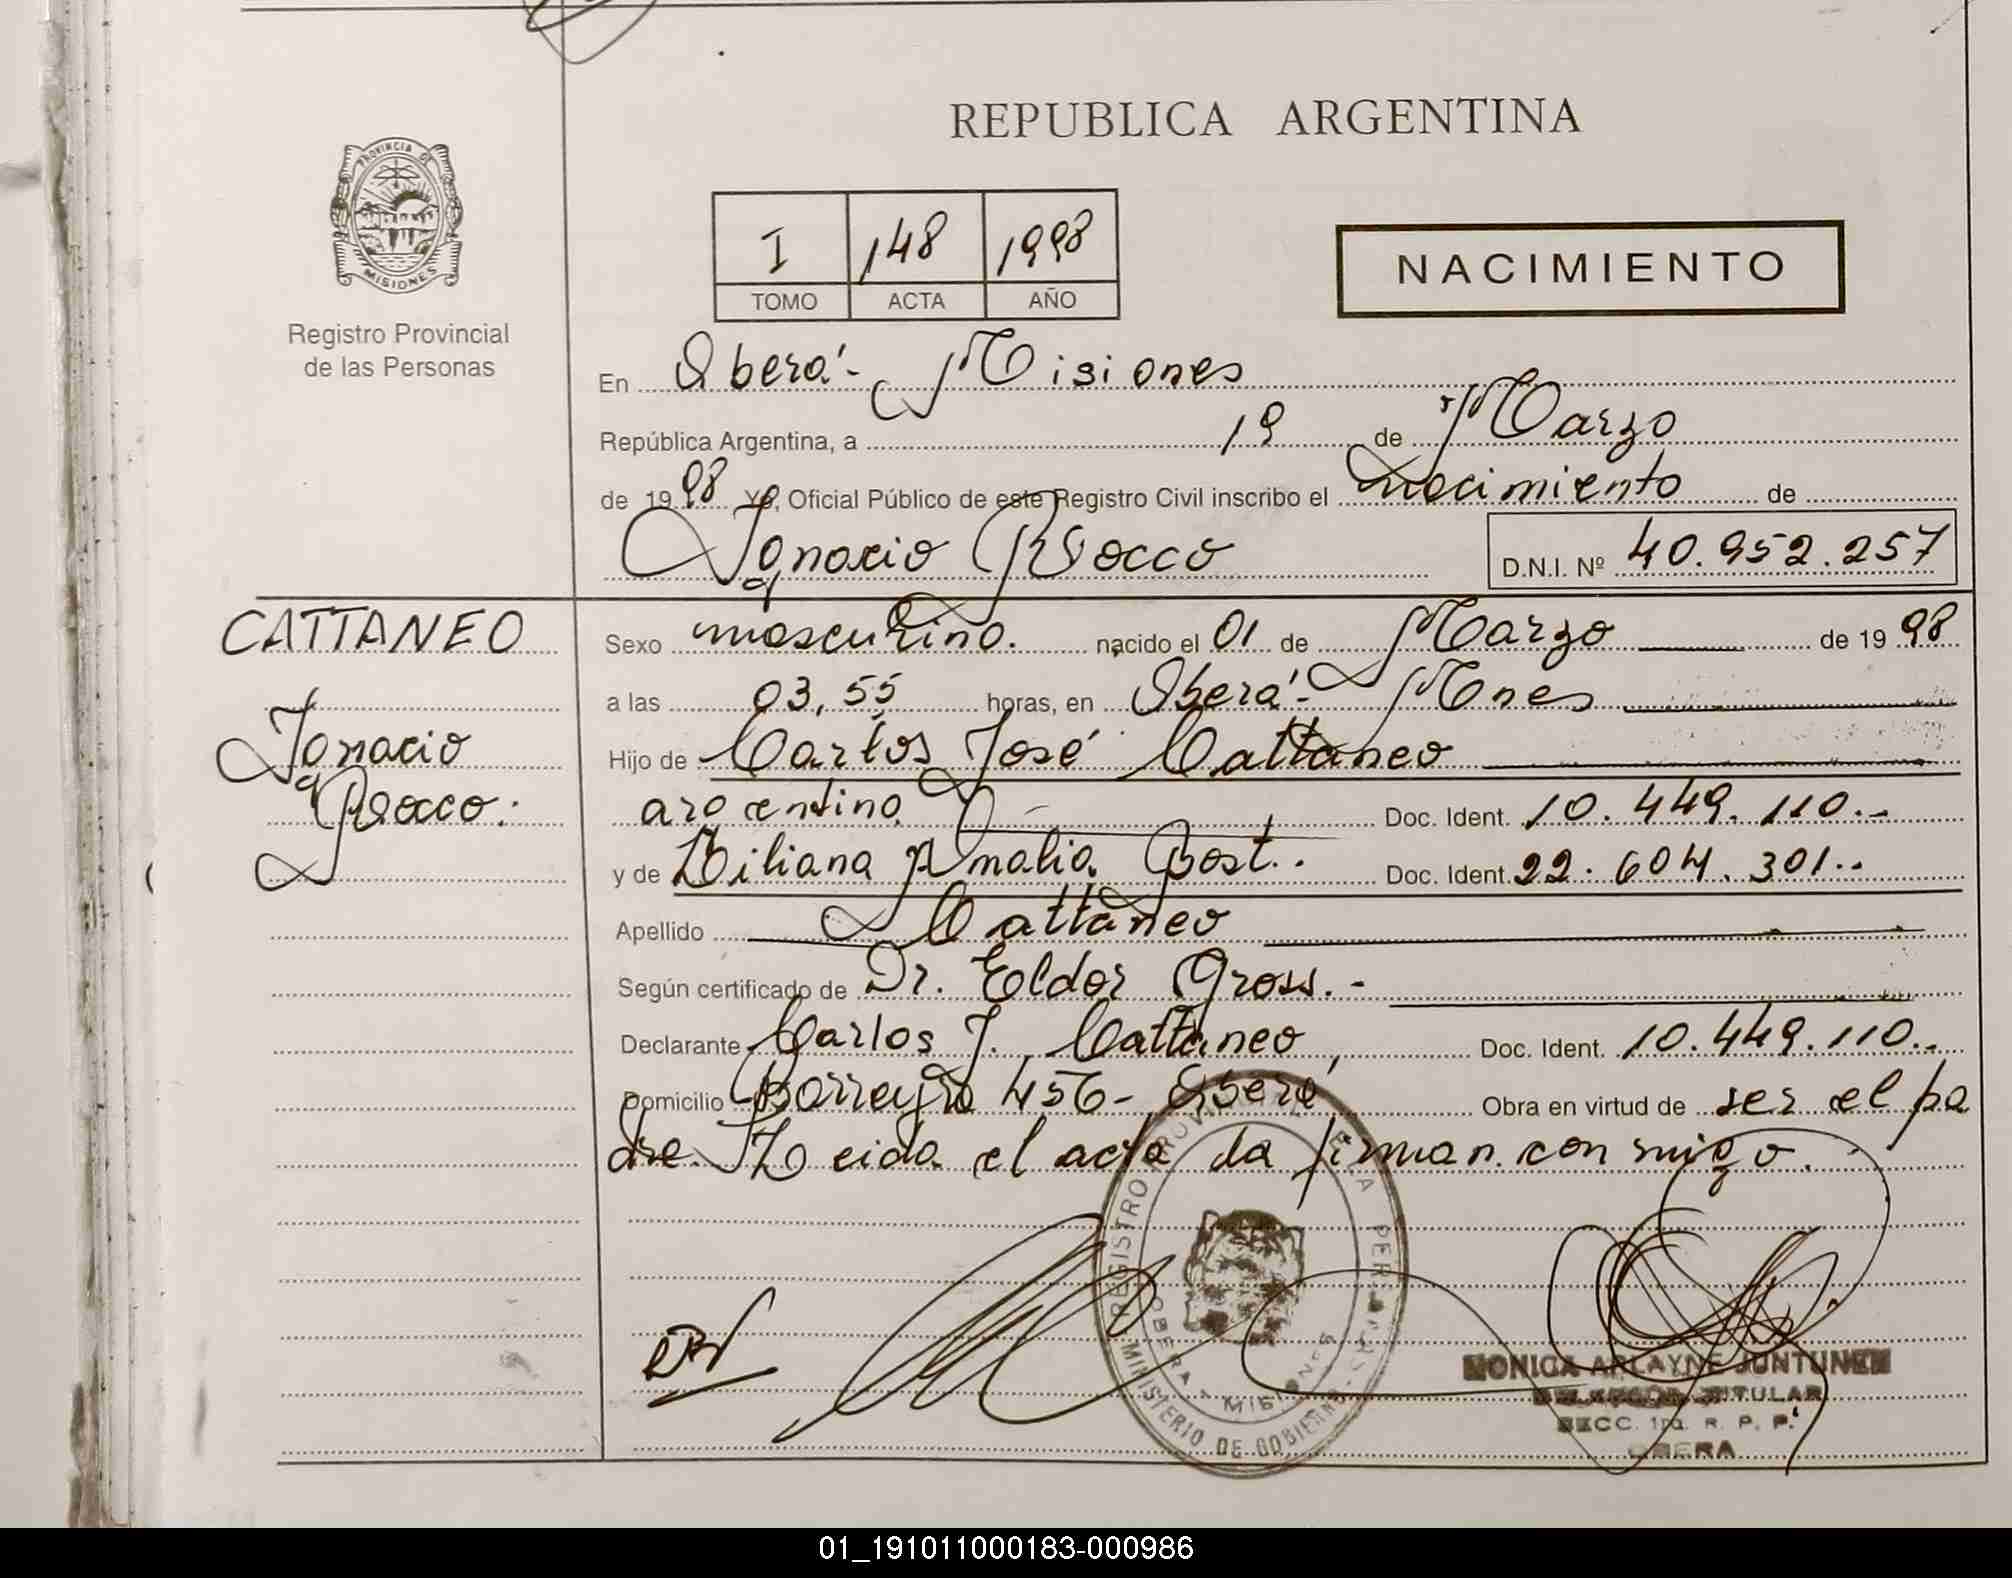 REPUBLICA ARGENTINA
PROVINCIA DE MISIONES
Registro Provincial
de las Personas
I 148 1998
TOMO ACTA AÑO
NACIMIENTO
En Oberá - Misiones
República Argentina, a 19 de Marzo
de 19 98 Yo, Oficial Público de este Registro Civil inscribo el Nacimiento de
Ignacio Rocco D.N.I. Nº 40.952.257
CATTANEO
Ignacio
Rocco:
Sexo masculino. nacido el 01 de Marzo de 19 98
a las 03,55 horas, en Oberá - Mnes
Hijo de Carlos José Cattaneo
argentino Doc. Ident. 10.449.110.-
y de Liliana Amalia Bost.. Doc. Ident. 22.604.301..
Apellido Cattaneo
Según certificado de Dr. Eldor Gross. -
Declarante Carlos J. Cattaneo Doc. Ident. 10.449.110..
Domicilio Barreyro 456 - Oberá Obra en virtud de ser el pa
dre. Leida el acta la firman conmigo.
REGISTRO PROVINCIAL PER
OBERA - MISIONES
MINISTERIO DE GOBIERNO
MONICA ARLAYNE JUNTUNEN
TITULAR
SECC. 1ra. R. P. P.
OBERA
01_191011000183-000986